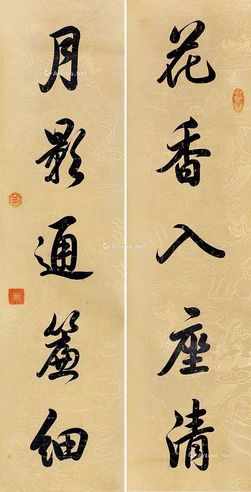 花香入座清
月影通簾細